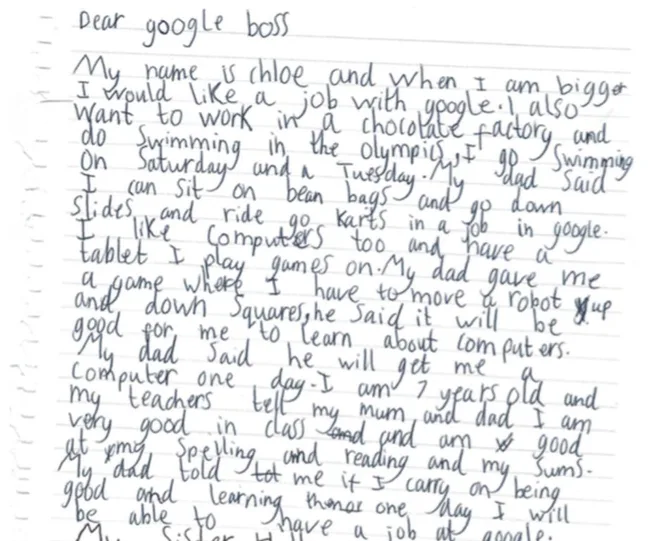 Dear google boss
My name is chloe and when I am bigger
I would like a job with google. I also
want to work in a chocolate factory and
do swimming in the olympics, I go swimming
on Saturday and a Tuesday. My dad said
I can sit on bean bags and go down
slides and ride go karts in a job in google.
I like computers too and have a
tablet I play games on. My dad gave me
a game where I have to move a robot up
and down squares, he said it will be
good for me to learn about computers.
My dad said he will get me a
computer one day. I am 7 years old and
my teachers tell my mum and dad I am
very good in class and and am good
at my spelling and reading and my sums.
My dad told me if I carry on being
good and learning one day I will
be able to have a job at google.
My sister